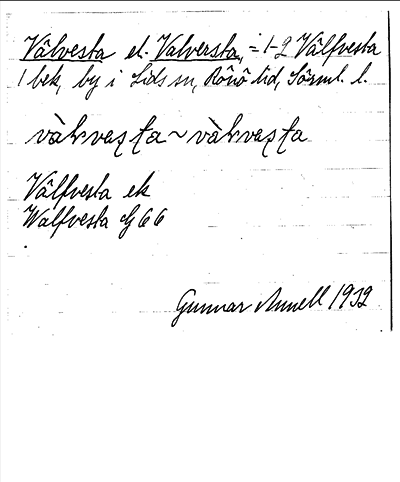 Välvesta el. Valversta, = 1-2 Välfvesta
1 bek, by i Lids sn, Rönö hd, Sörml. l.
vàlvesta ~ vàlvesta
Välfvesta ek
Walfvesta Gg 66
Gunnar Annell 1932